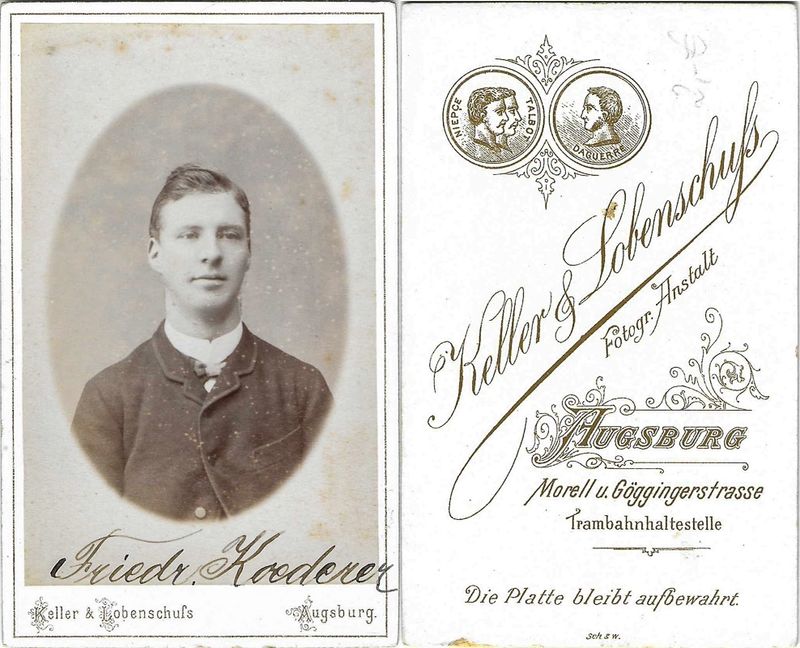 Friedr. Koederer
Keller & Lobenschuſs
Augsburg.
NIEPÇE
TALBOT
DAGUERRE
Keller & Lobenschuſs
Fotogr. Anstalt
AUGSBURG
Morell u. Göggingerstrasse
Trambahnhaltestelle
Die Platte bleibt aufbewahrt.
sch s w.